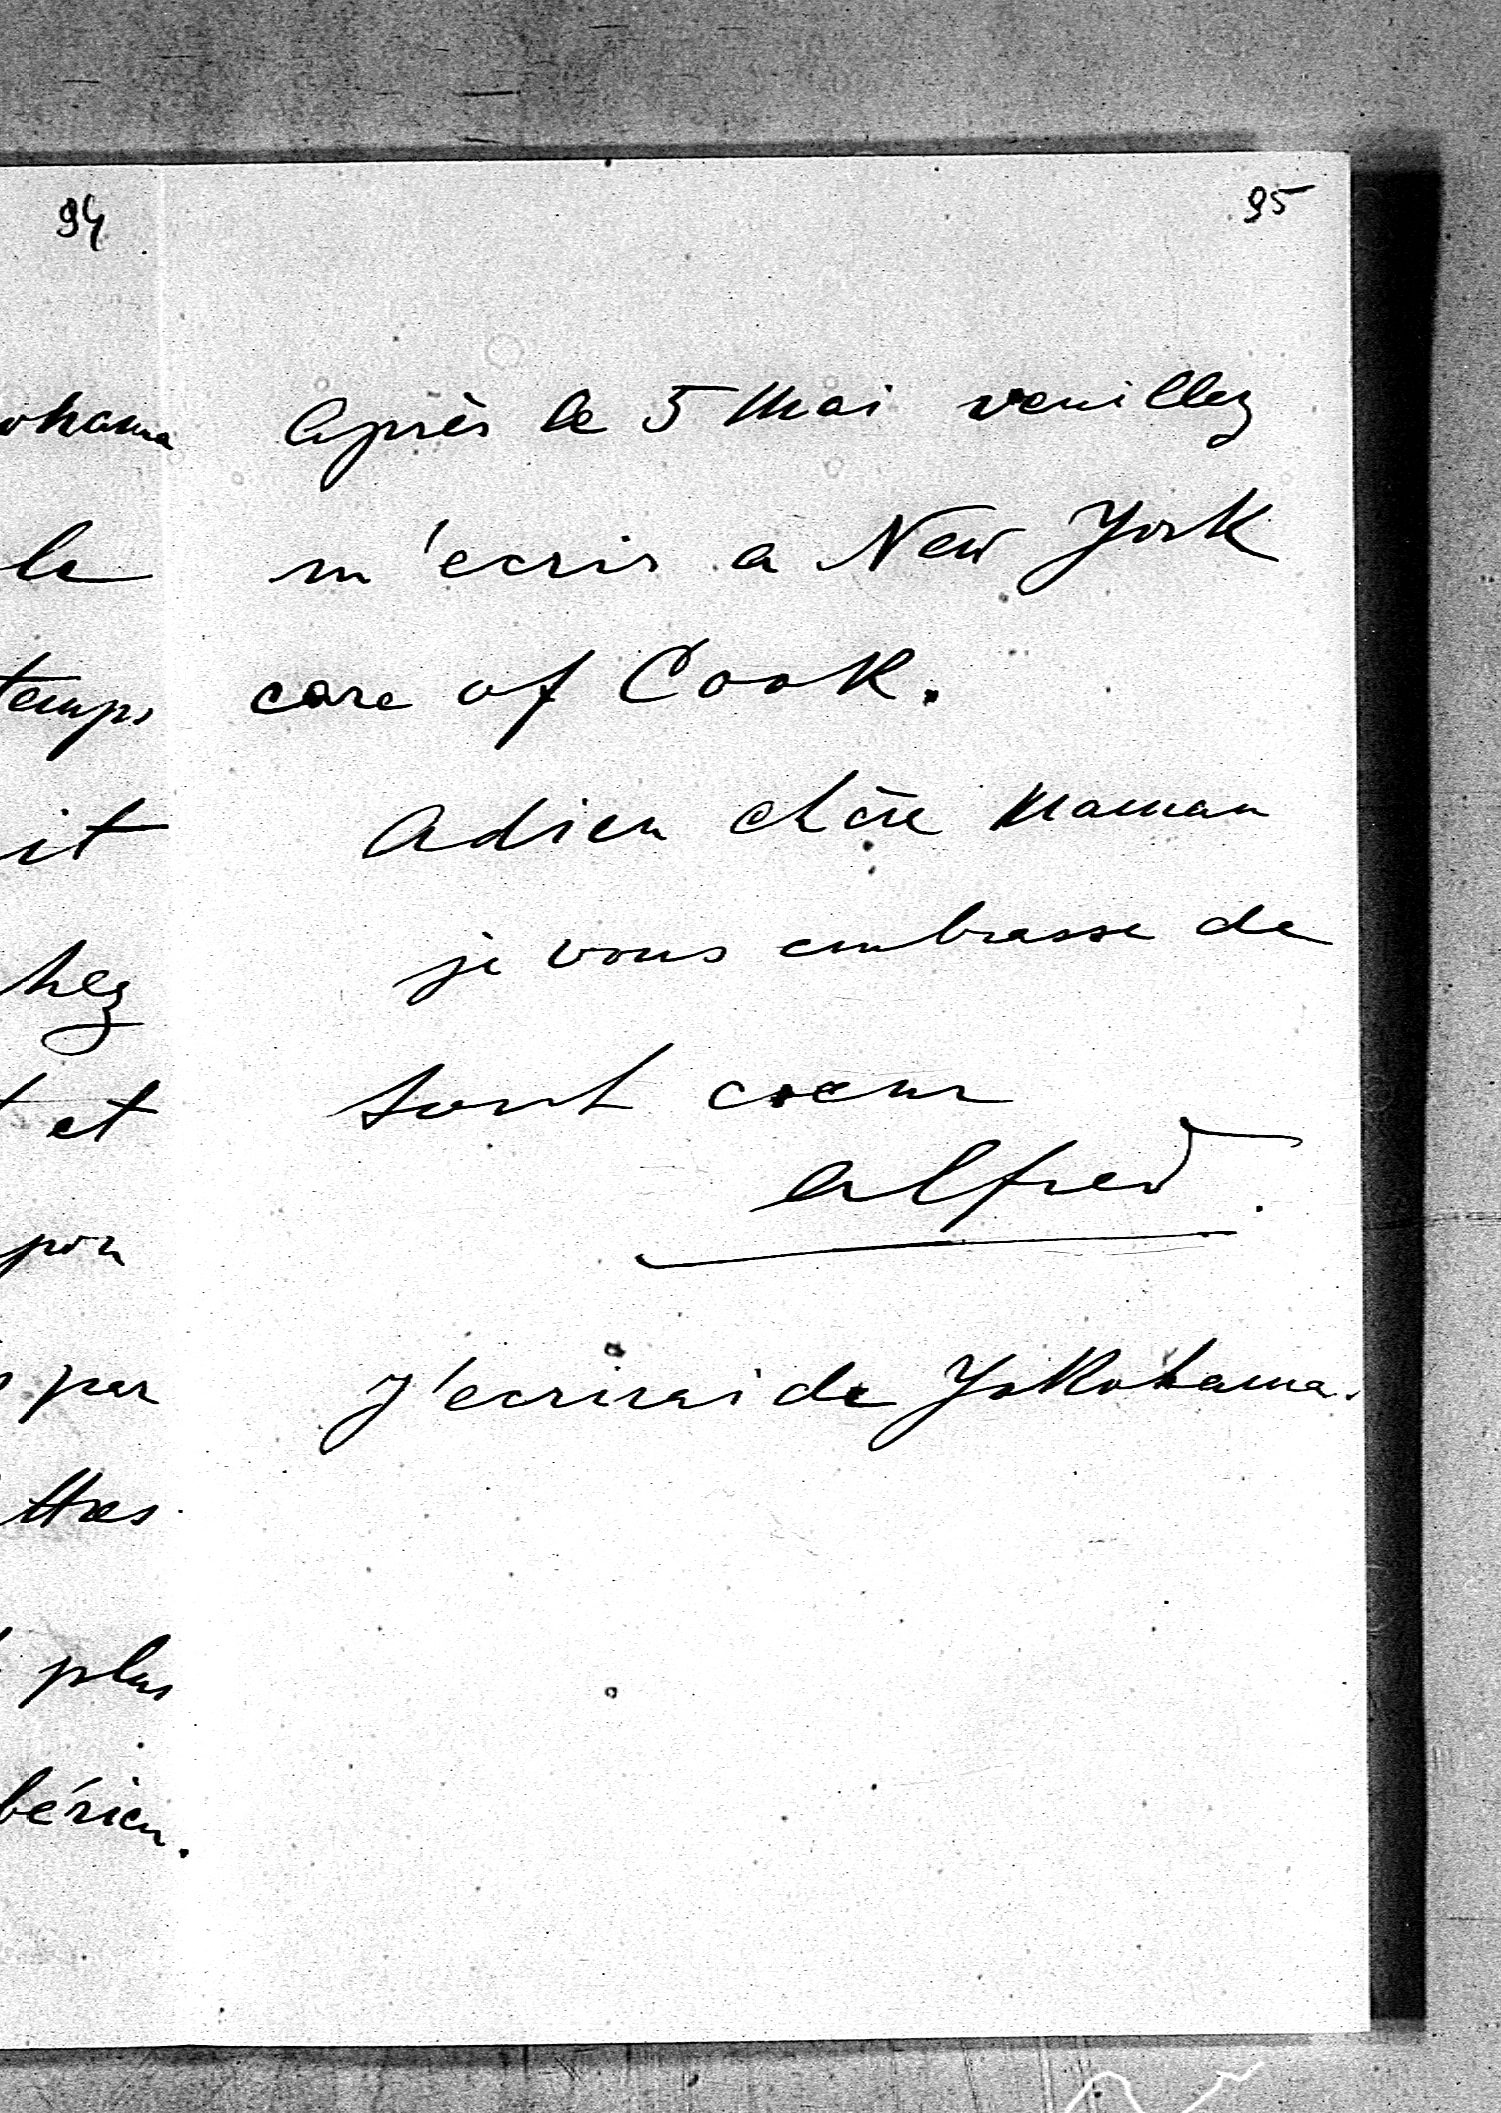 94
ohama
le
temps
it
hez
et
pon
par
ttres
plus
bérien.
95
Après le 5 Mai veuillez
m'ecrir a New York
care of Cook.
Adieu chère Maman
je vous embrasse de
tout coeur
Alfred.
J'ecrirai de Yokohama.